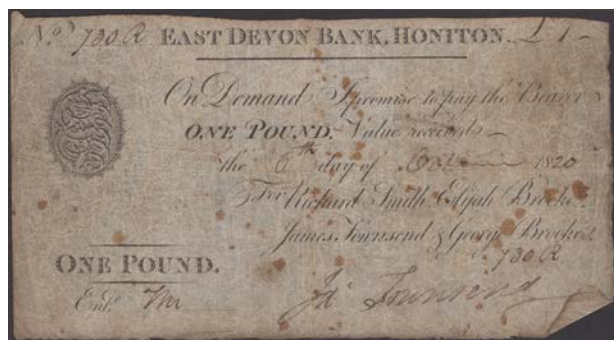 No. 730 R EAST DEVON BANK, HONITON. £1-
On Demand I promise to pay the Bearer
ONE POUND. Value received
the 6th day of 1820
For Richard Smith Elijah Brooke,
James Townsend & George Brooke.
730 R
ONE POUND.
Entd.
Jas. Townsend